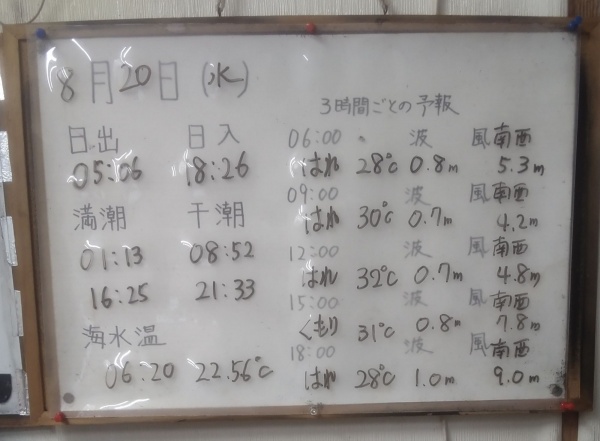 8月20日(水)
日出 日入
05:06 18:26
満潮 干潮
01:13 08:52
16:25 21:33
海水温
06:20 22.56℃
3時間ごとの予報
06:00 波 風 南西
はれ 28℃ 0.8m 5.3m
09:00 波 風 南西
はれ 30℃ 0.7m 4.2m
12:00 波 風 南西
はれ 32℃ 0.7m 4.8m
15:00 波 風 南西
くもり 31℃ 0.8m 7.8m
18:00 波 風 南西
はれ 28℃ 1.0m 9.0m